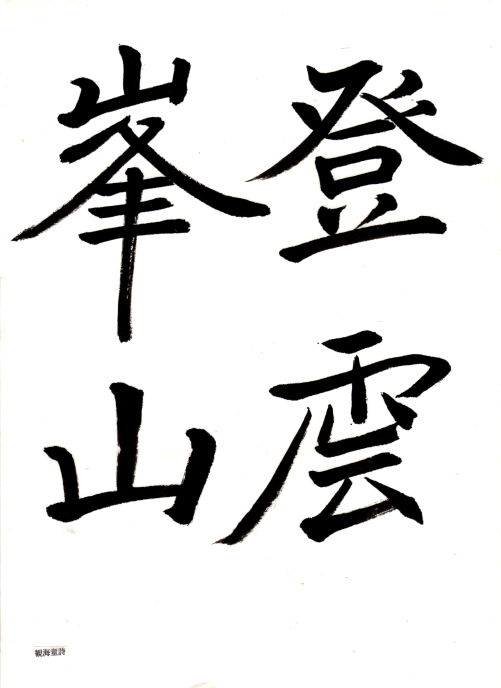 登雲
峯山
観海童詩